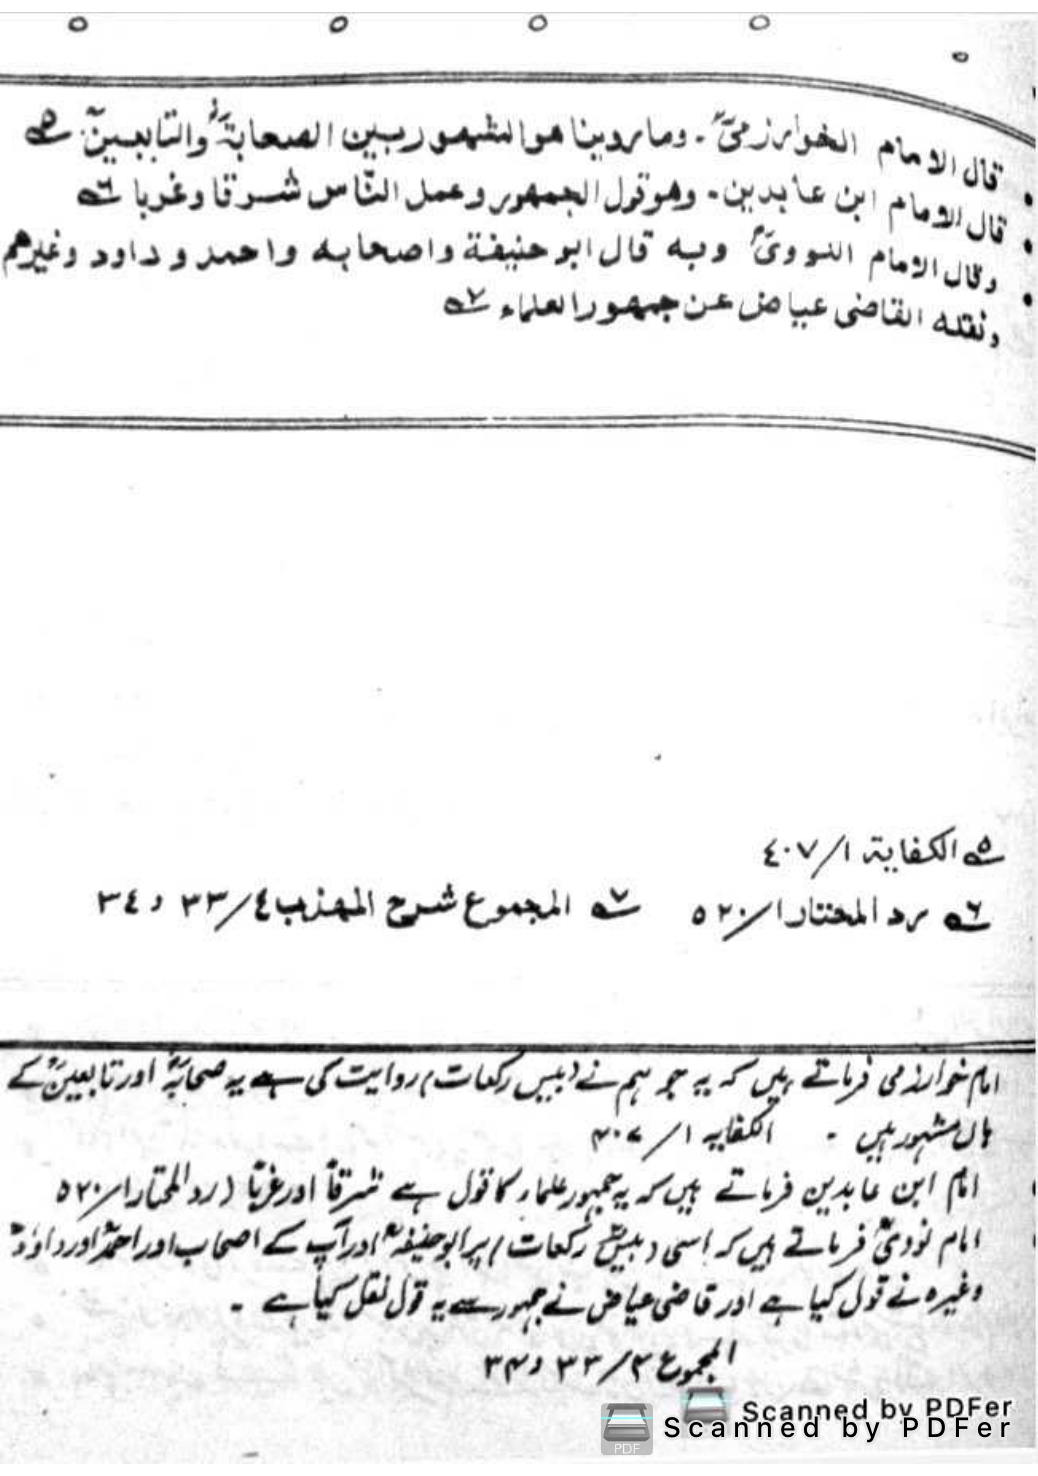 قال الامام الخوارزميؒ ۔ وما روينا هو المشهور بين الصحابةؓ والتابعينؒ ۵
قال الامام ابن عابدين ۔ وهو قول الجمهور وعمل النّاس شرقا وغربا ۶
وقال الامام النوويؒ وبه قال ابو حنيفة واصحابه واحمد و داود وغيرهم
ونقله القاضى عياض عن جمهور العلماء ۷
۵ الكفاية ١/٤٠٧
۶ رد المحتار ١/٥٢٠ ۷ المجموع شرح المهذب ٤/٣٣ و ٣٤
امام خوارزمی فرماتے ہیں کہ یہ جو ہم نے (بیس رکعات) روایت کی ہے یہ صحابہؓ اور تابعینؒ کے
ہاں مشہور ہیں ۔ الکفایہ ۱/۴۰۷
امام ابن عابدین فرماتے ہیں کہ یہ جمہور علماء کا قول ہے شرقاً اور غرباً (رد المحتار ۱/۵۲۰
امام نوویؒ فرماتے ہیں کہ اسی (بیس رکعات) پر ابو حنیفہؒ اور آپ کے اصحاب اور احمدؒ اور داؤدؒ
وغیرہ نے قول کیا ہے اور قاضی عیاض نے جمہور سے یہ قول نقل کیا ہے ۔
المجموع ۴/۳۳ و ۳۴
Scanned by PDFer
PDF Scanned by PDFer